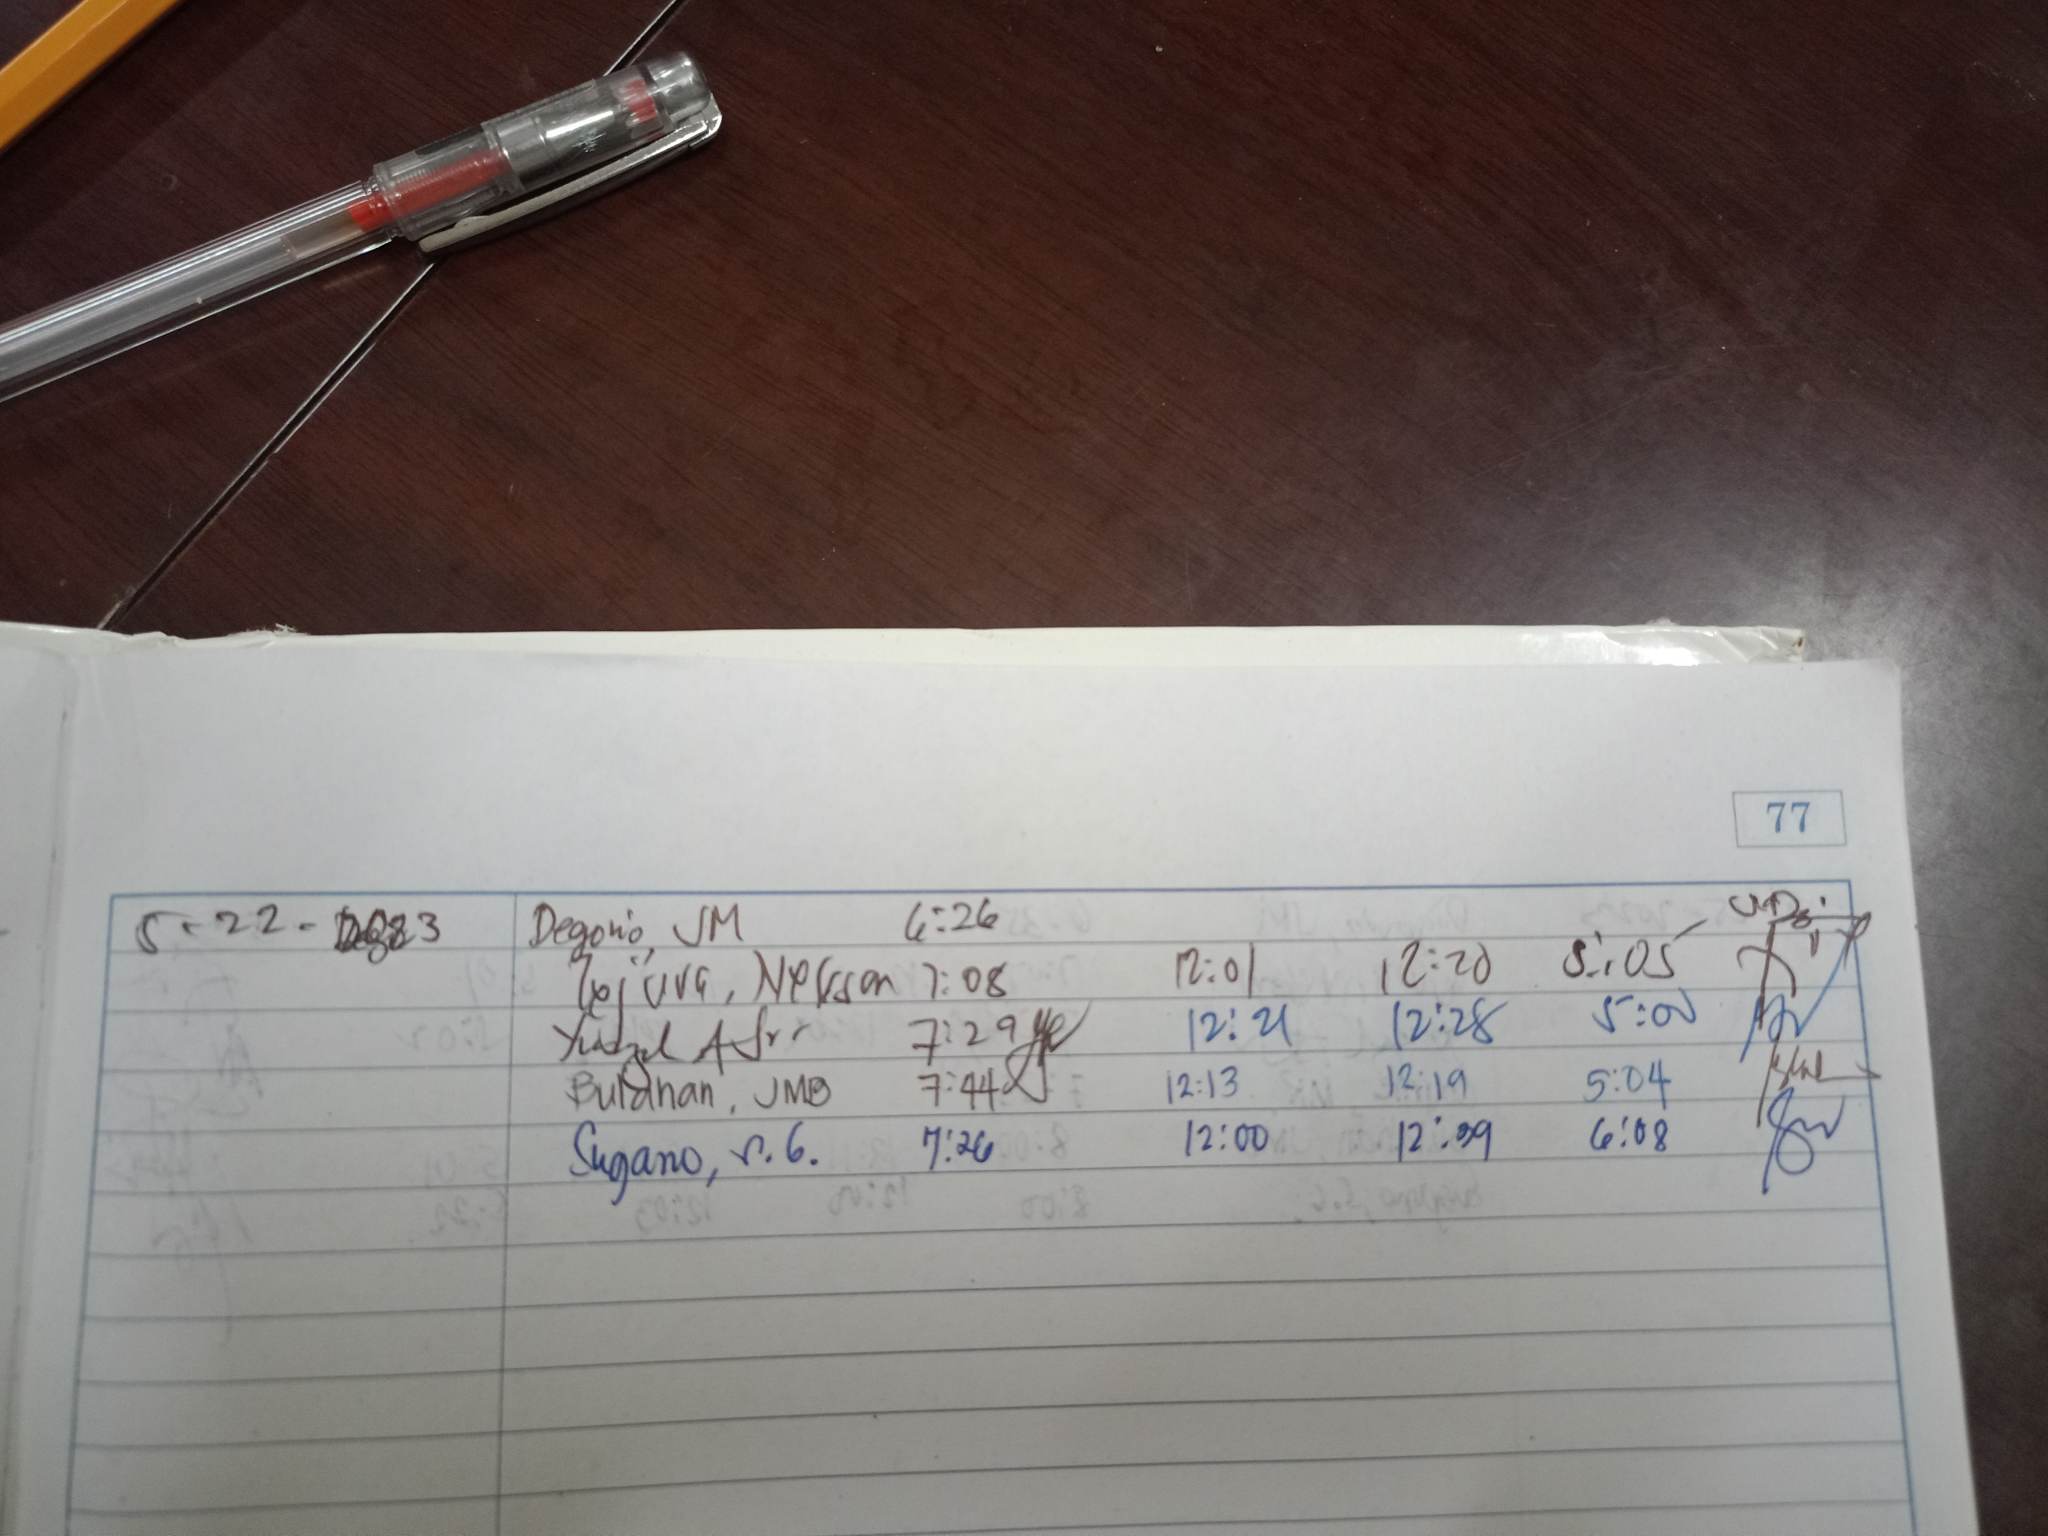 77
5-22-2023 Degorio, JM 6:26
Nelsson 7:08 12:01 12:20 5:05
7:29 12:21 12:28 5:00
Bulahan, JMB 7:44 12:13 12:19 5:04
Sugano, S.G. 7:26 12:00 12:29 6:08